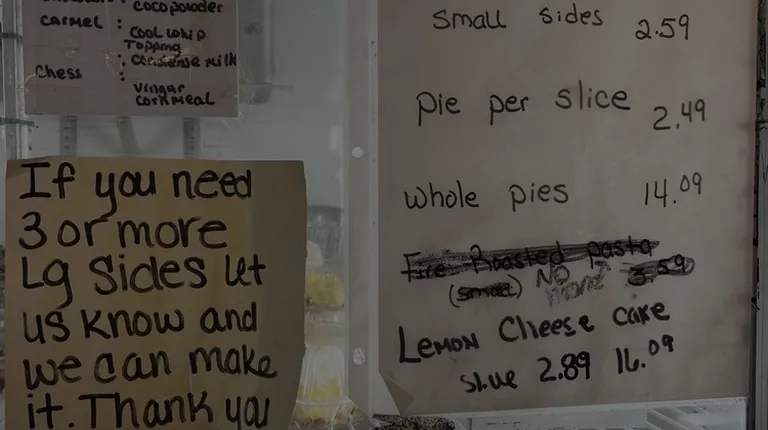 cocopowder
CARMEL : COOL WHIP
Topping
: Condense milk
Chess :
Vingar
cornmeal
If you need
3 or more
Lg Sides let
us know and
we can make
it. Thank you
small sides 2.59
pie per slice 2.49
whole pies 14.09
Fire Roasted pasta
(small) NO 3.59
more
LEMON Cheese cake
slice 2.89 16.09